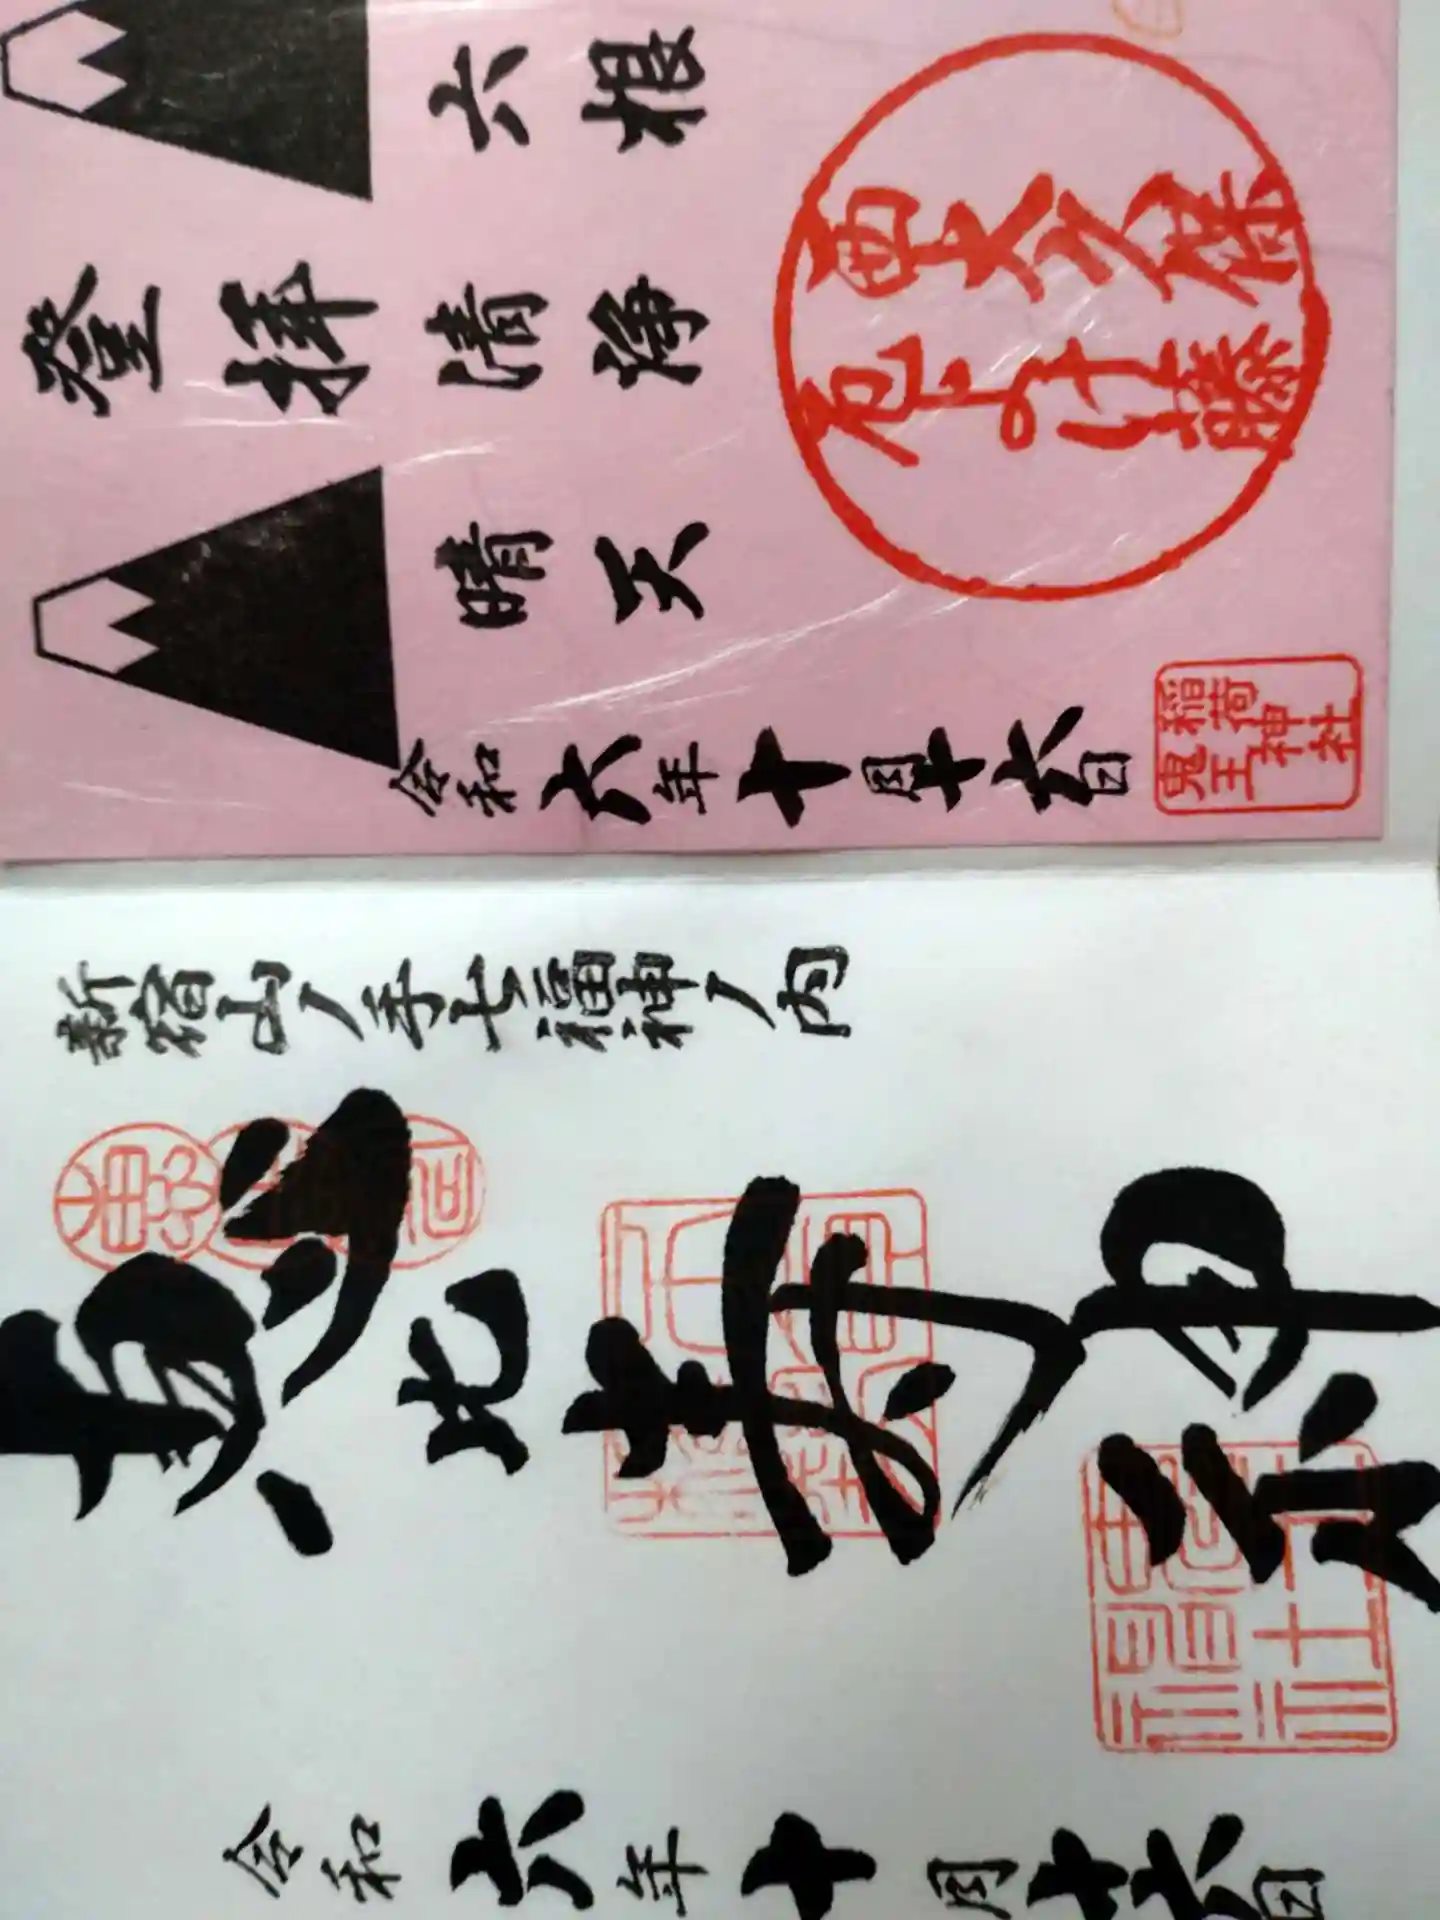 登拝
六根
清浄
晴天
西大久保
厄よけ藤
令和六年十月十六日
稲荷神社
鬼王
新宿山ノ手七福神ノ内
恵比寿神
令和六年十月十六日